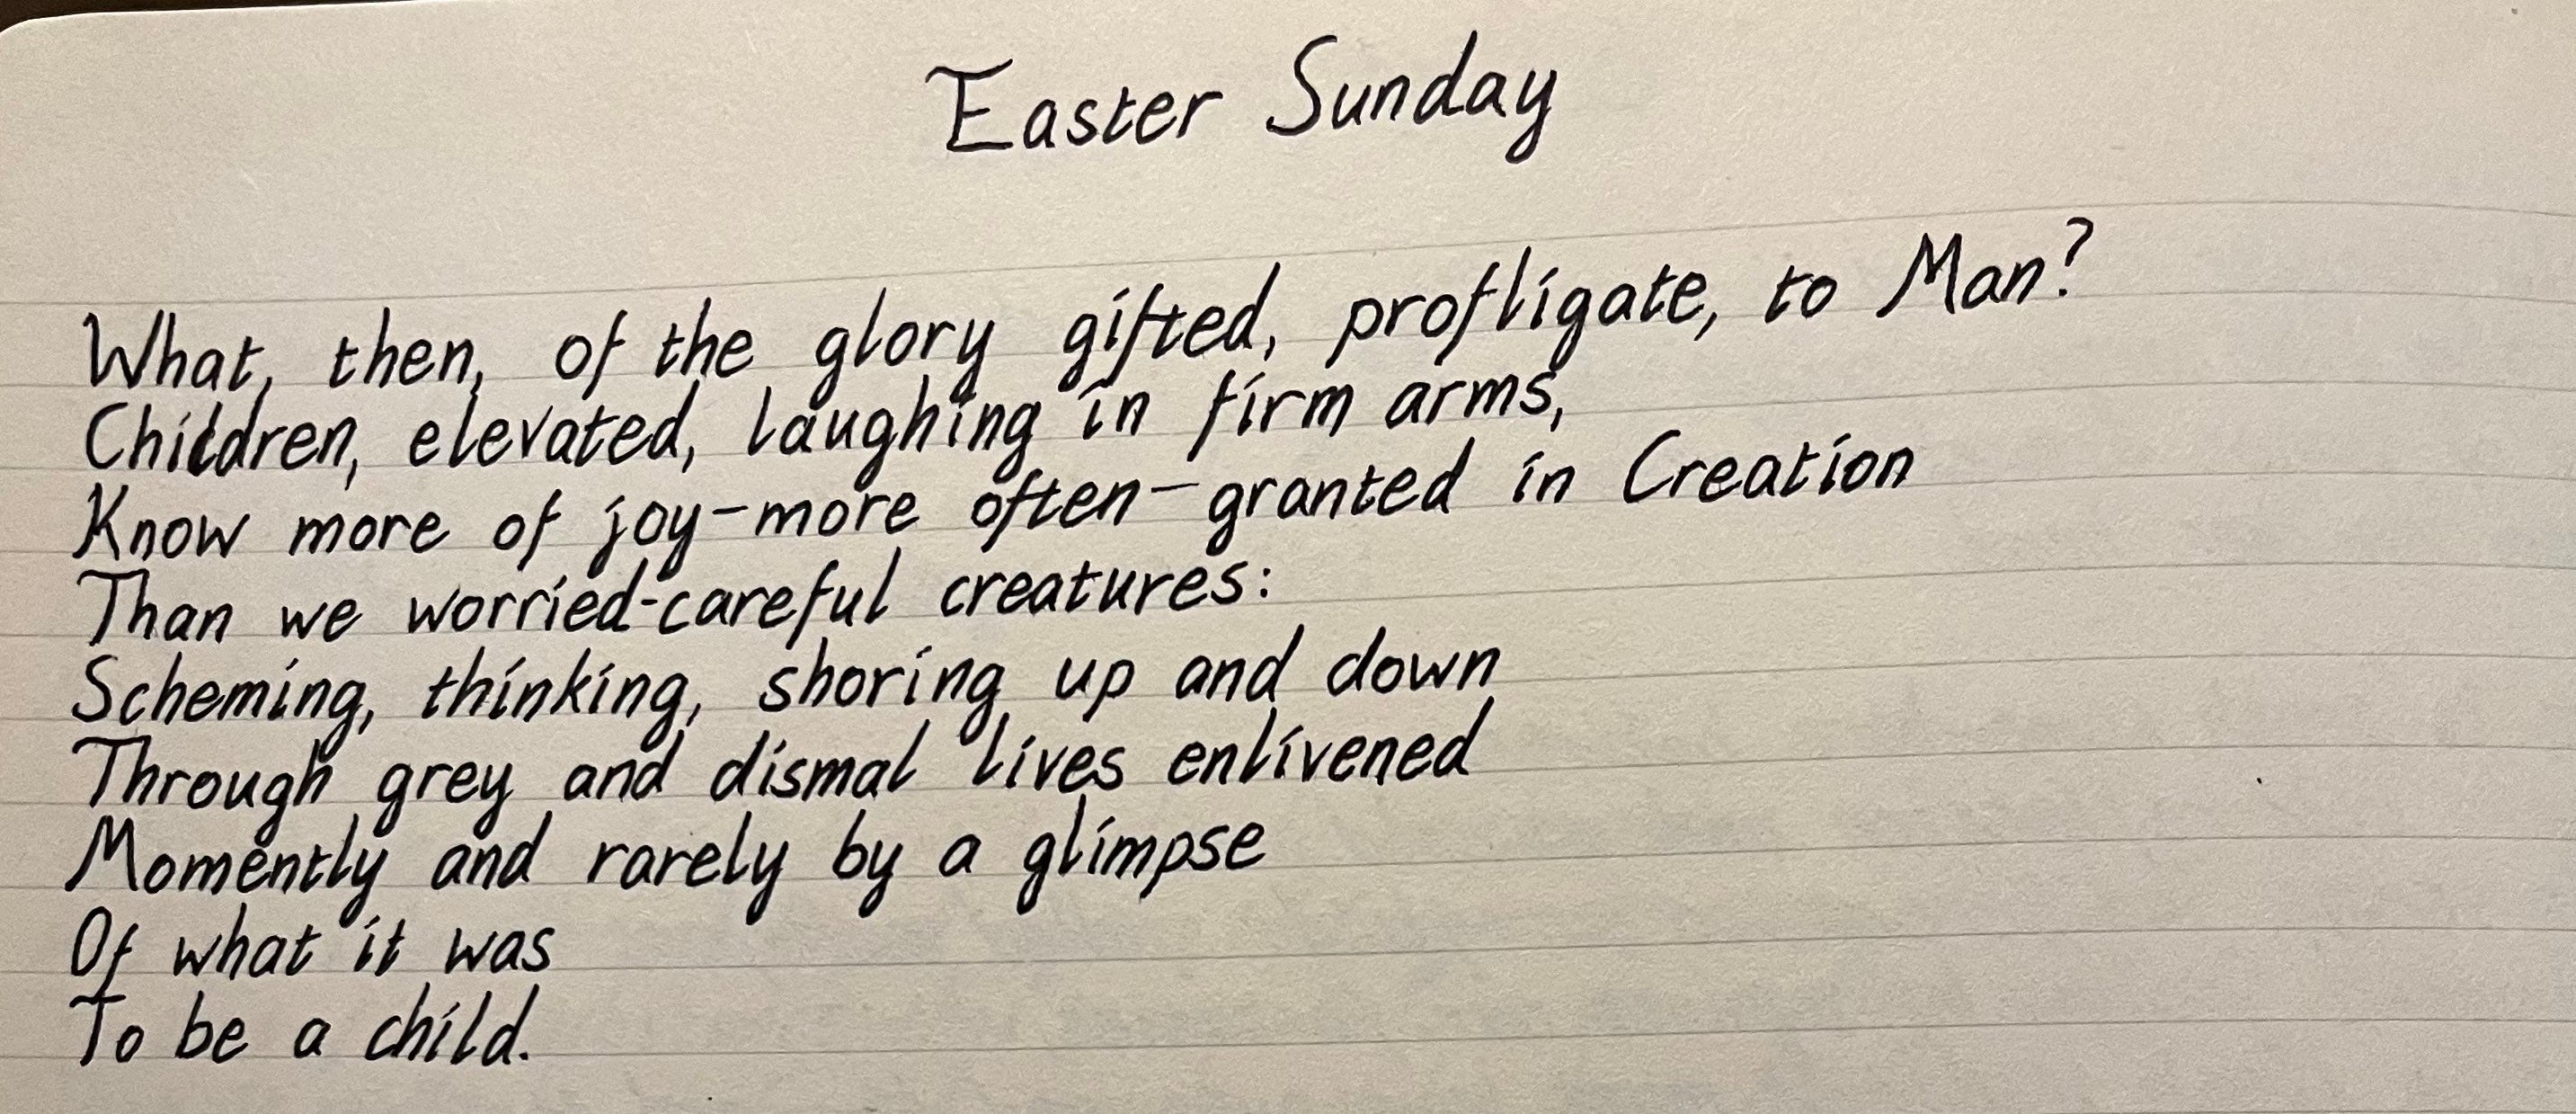 Easter Sunday
What, then, of the glory gifted, profligate, to Man?
Children, elevated, laughing in firm arms,
Know more of joy—more often—granted in Creation
Than we worried-careful creatures:
Scheming, thinking, shoring up and down
Through grey and dismal lives enlivened
Momently and rarely by a glimpse
Of what it was
To be a child.